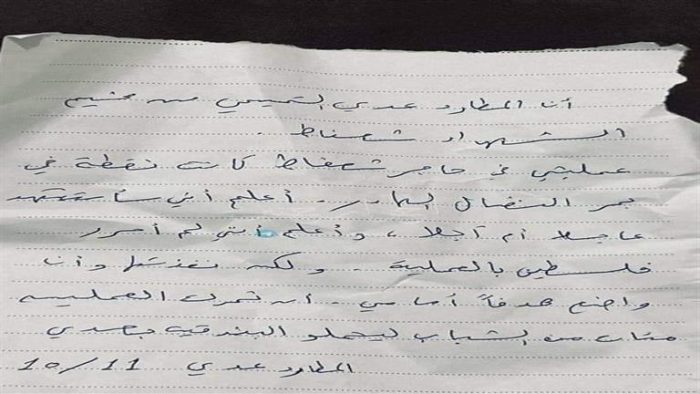 أنا المطارد عدي التميمي من مخيم
الشهداء شعفاط .
عمليتي في حاجز شعفاط كانت نقطة في
بحر النضال الهادر. أعلم أني سأستشهد
عاجلا أم آجلا ، وأعلم أنني لم أحرر
فلسطين بالعملية .. ولكن نفذتها وأنا
واضع هدفاً أمامي .. أن تحرك العملية
مئات من الشباب ليحملو البندقية بعدي
المطارد عدي 10/11